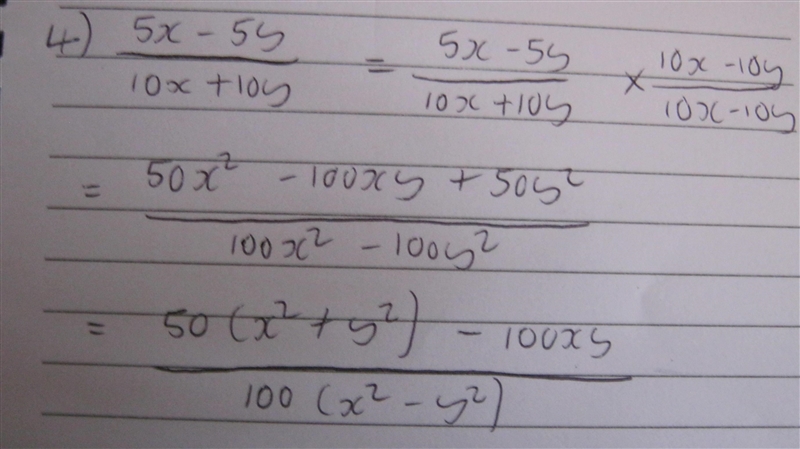 4) (5x - 5y)/(10x + 10y) = (5x - 5y)/(10x + 10y) × (10x - 10y)/(10x - 10y)
= (50x² - 100xy + 50y²)/(100x² - 100y²)
= (50(x² + y²) - 100xy)/(100(x² - y²))